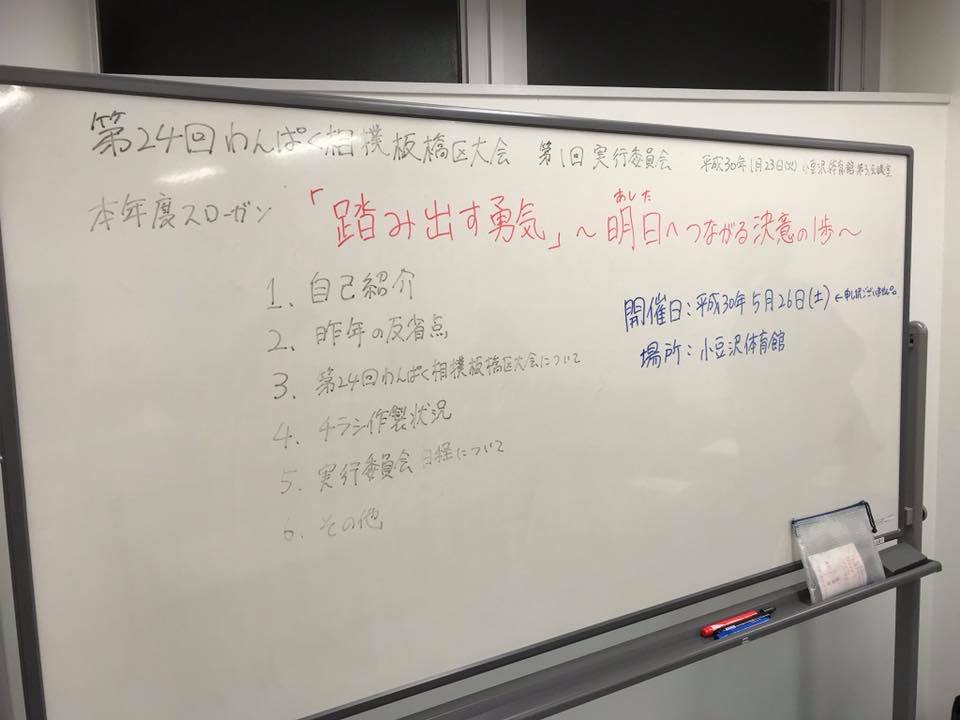 第24回わんぱく相撲板橋区大会 第1回実行委員会 平成30年1月23日(火) 小豆沢体育館第3会議室
本年度スローガン 「踏み出す勇気」～明日へつながる決意の1歩～
あした
1. 自己紹介
2. 昨年の反省点
3. 第24回わんぱく相撲板橋区大会について
4. チラシ作製状況
5. 実行委員会日程について
6. その他
開催日：平成30年5月26日(土) ←申し訳ございません。
場所：小豆沢体育館